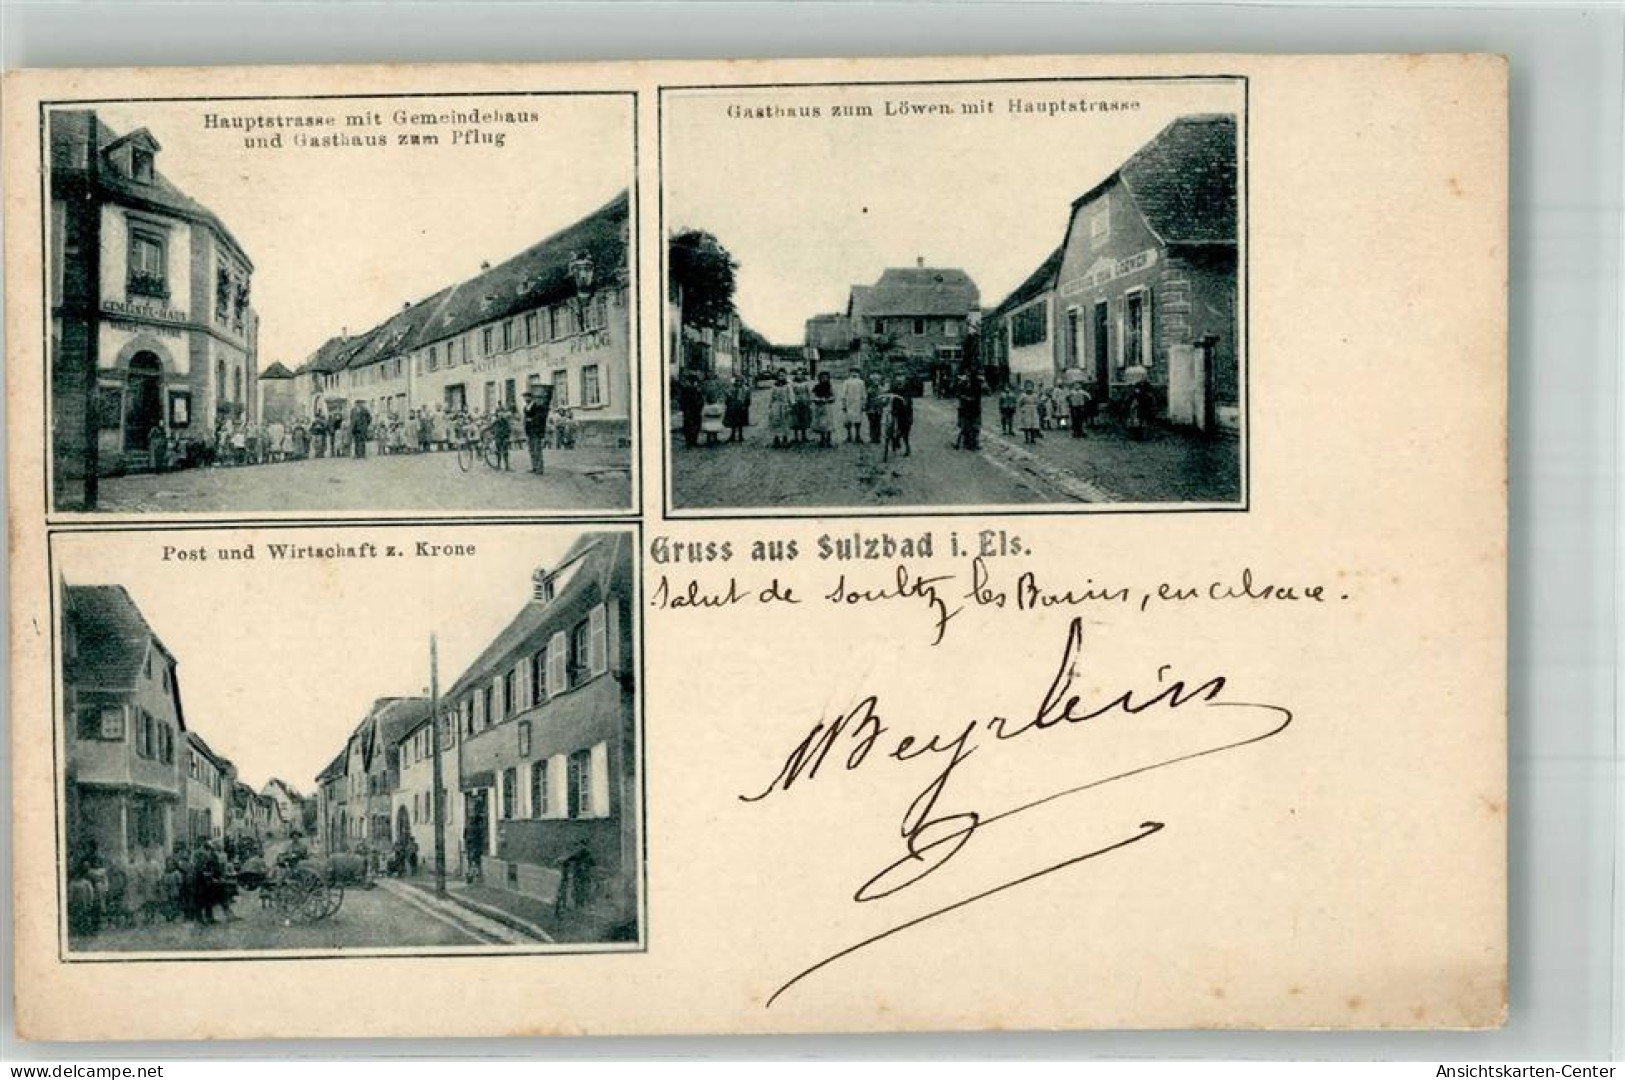 Hauptstrasse mit Gemeindehaus
und Gasthaus zum Pflug
GEMEINDE-HAUS
PFLUG
Gasthaus zum Löwen mit Hauptstrasse
ZUM LOEWEN
Post und Wirtschaft z. Krone
Gruss aus Sulzbad i. Els.
Salut de Soultz les Bains, en Alsace.
Beyrlein
www.delcampe.net
Ansichtskarten-Center